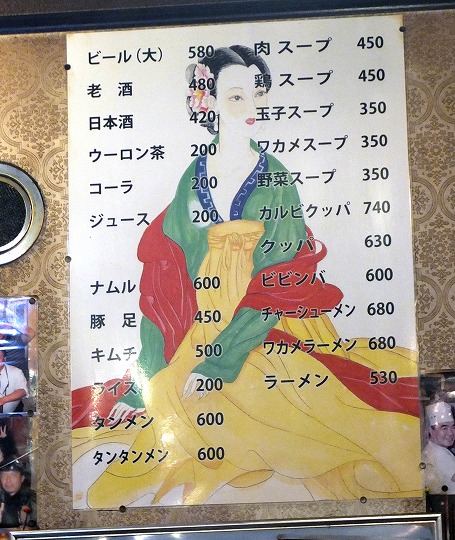 ビール（大） 580
老 酒 480
日本酒 420
ウーロン茶 200
コーラ 200
ジュース 200
ナムル 600
豚 足 450
キムチ 500
ライス 200
タンメン 600
タンタンメン 600
肉 スープ 450
鶏 スープ 450
玉子スープ 350
ワカメスープ 350
野菜スープ 350
カルビクッパ 740
クッパ 630
ビビンバ 600
チャーシューメン 680
ワカメラーメン 680
ラーメン 530